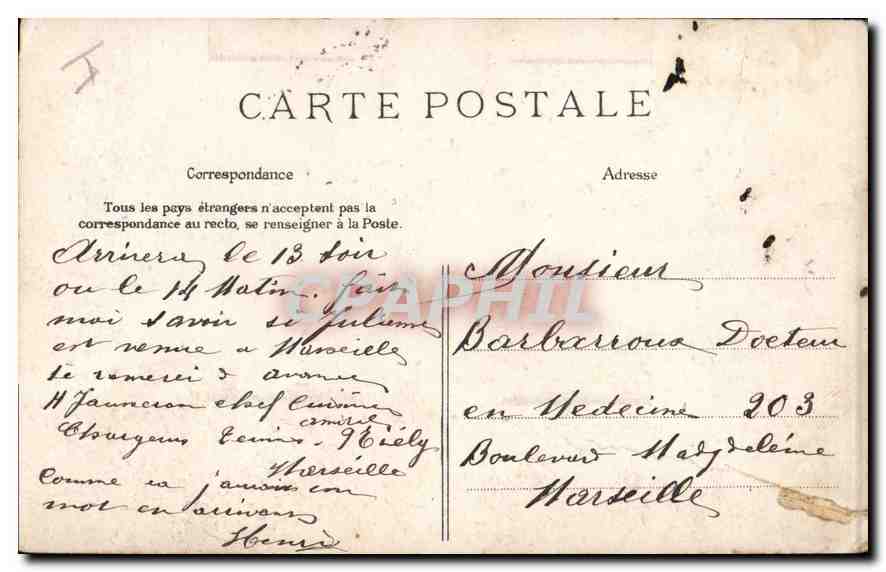 CARTE POSTALE
Correspondance
Tous les pays étrangers n'acceptent pas la
correspondance au recto, se renseigner à la Poste.
Arrivera le 13 Soir
ou le 14 Matin. fais
moi savoir si Julienne
est venue a Marseille
te remerci d avance
H Jauneron chef Cuisine
amiral
Chargeurs Reunis
Marseille
Comme ca j aurais un
mot en arrivant
Henri
Adresse
Monsieur
Barbarroux Docteur
en Medecine 203
Boulevard Madgdeleine
Marseille
CPAPHIL